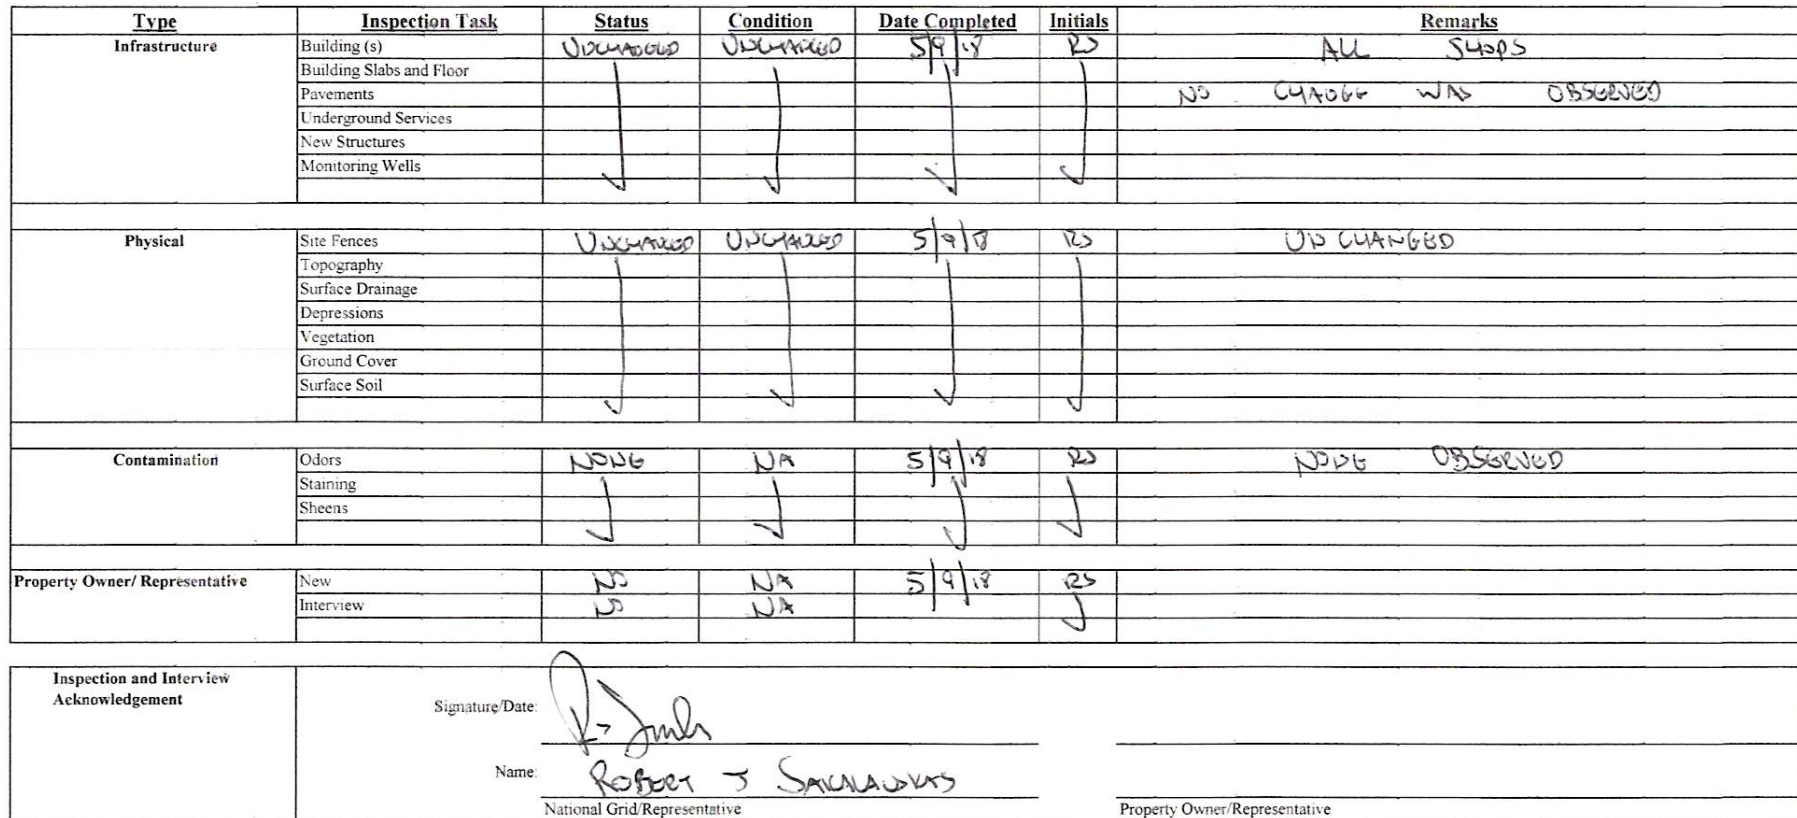 Type Inspection Task Status Condition Date Completed Initials Remarks
Infrastructure Building (s) UNCHANGED UNCHANGED 5/9/18 RS ALL SHOPS
Building Slabs and Floor
Pavements NO CHANGE WAS OBSERVED
Underground Services
New Structures
Monitoring Wells
Physical Site Fences UNCHANGED UNCHANGED 5/9/18 RS UNCHANGED
Topography
Surface Drainage
Depressions
Vegetation
Ground Cover
Surface Soil
Contamination Odors NONE NA 5/9/18 RS NONE OBSERVED
Staining
Sheens
Property Owner/ Representative New NO NA 5/9/18 RS
Interview NO NA
Inspection and Interview
Acknowledgement
Signature/Date:
Name: ROBERT J SAKALAUSKAS
National Grid/Representative Property Owner/Representative